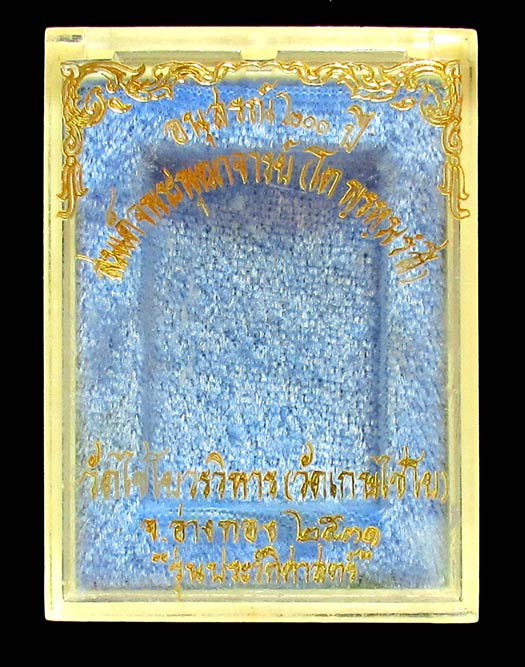 อนุสรณ์ ๒๐๐ ปี
สมเด็จพระพุฒาจารย์ (โต พฺรหฺมรํสี)
วัดไชโยวรวิหาร (วัดเกษไชโย)
จ.อ่างทอง ๒๕๓๑
"รุ่นประวัติศาสตร์"